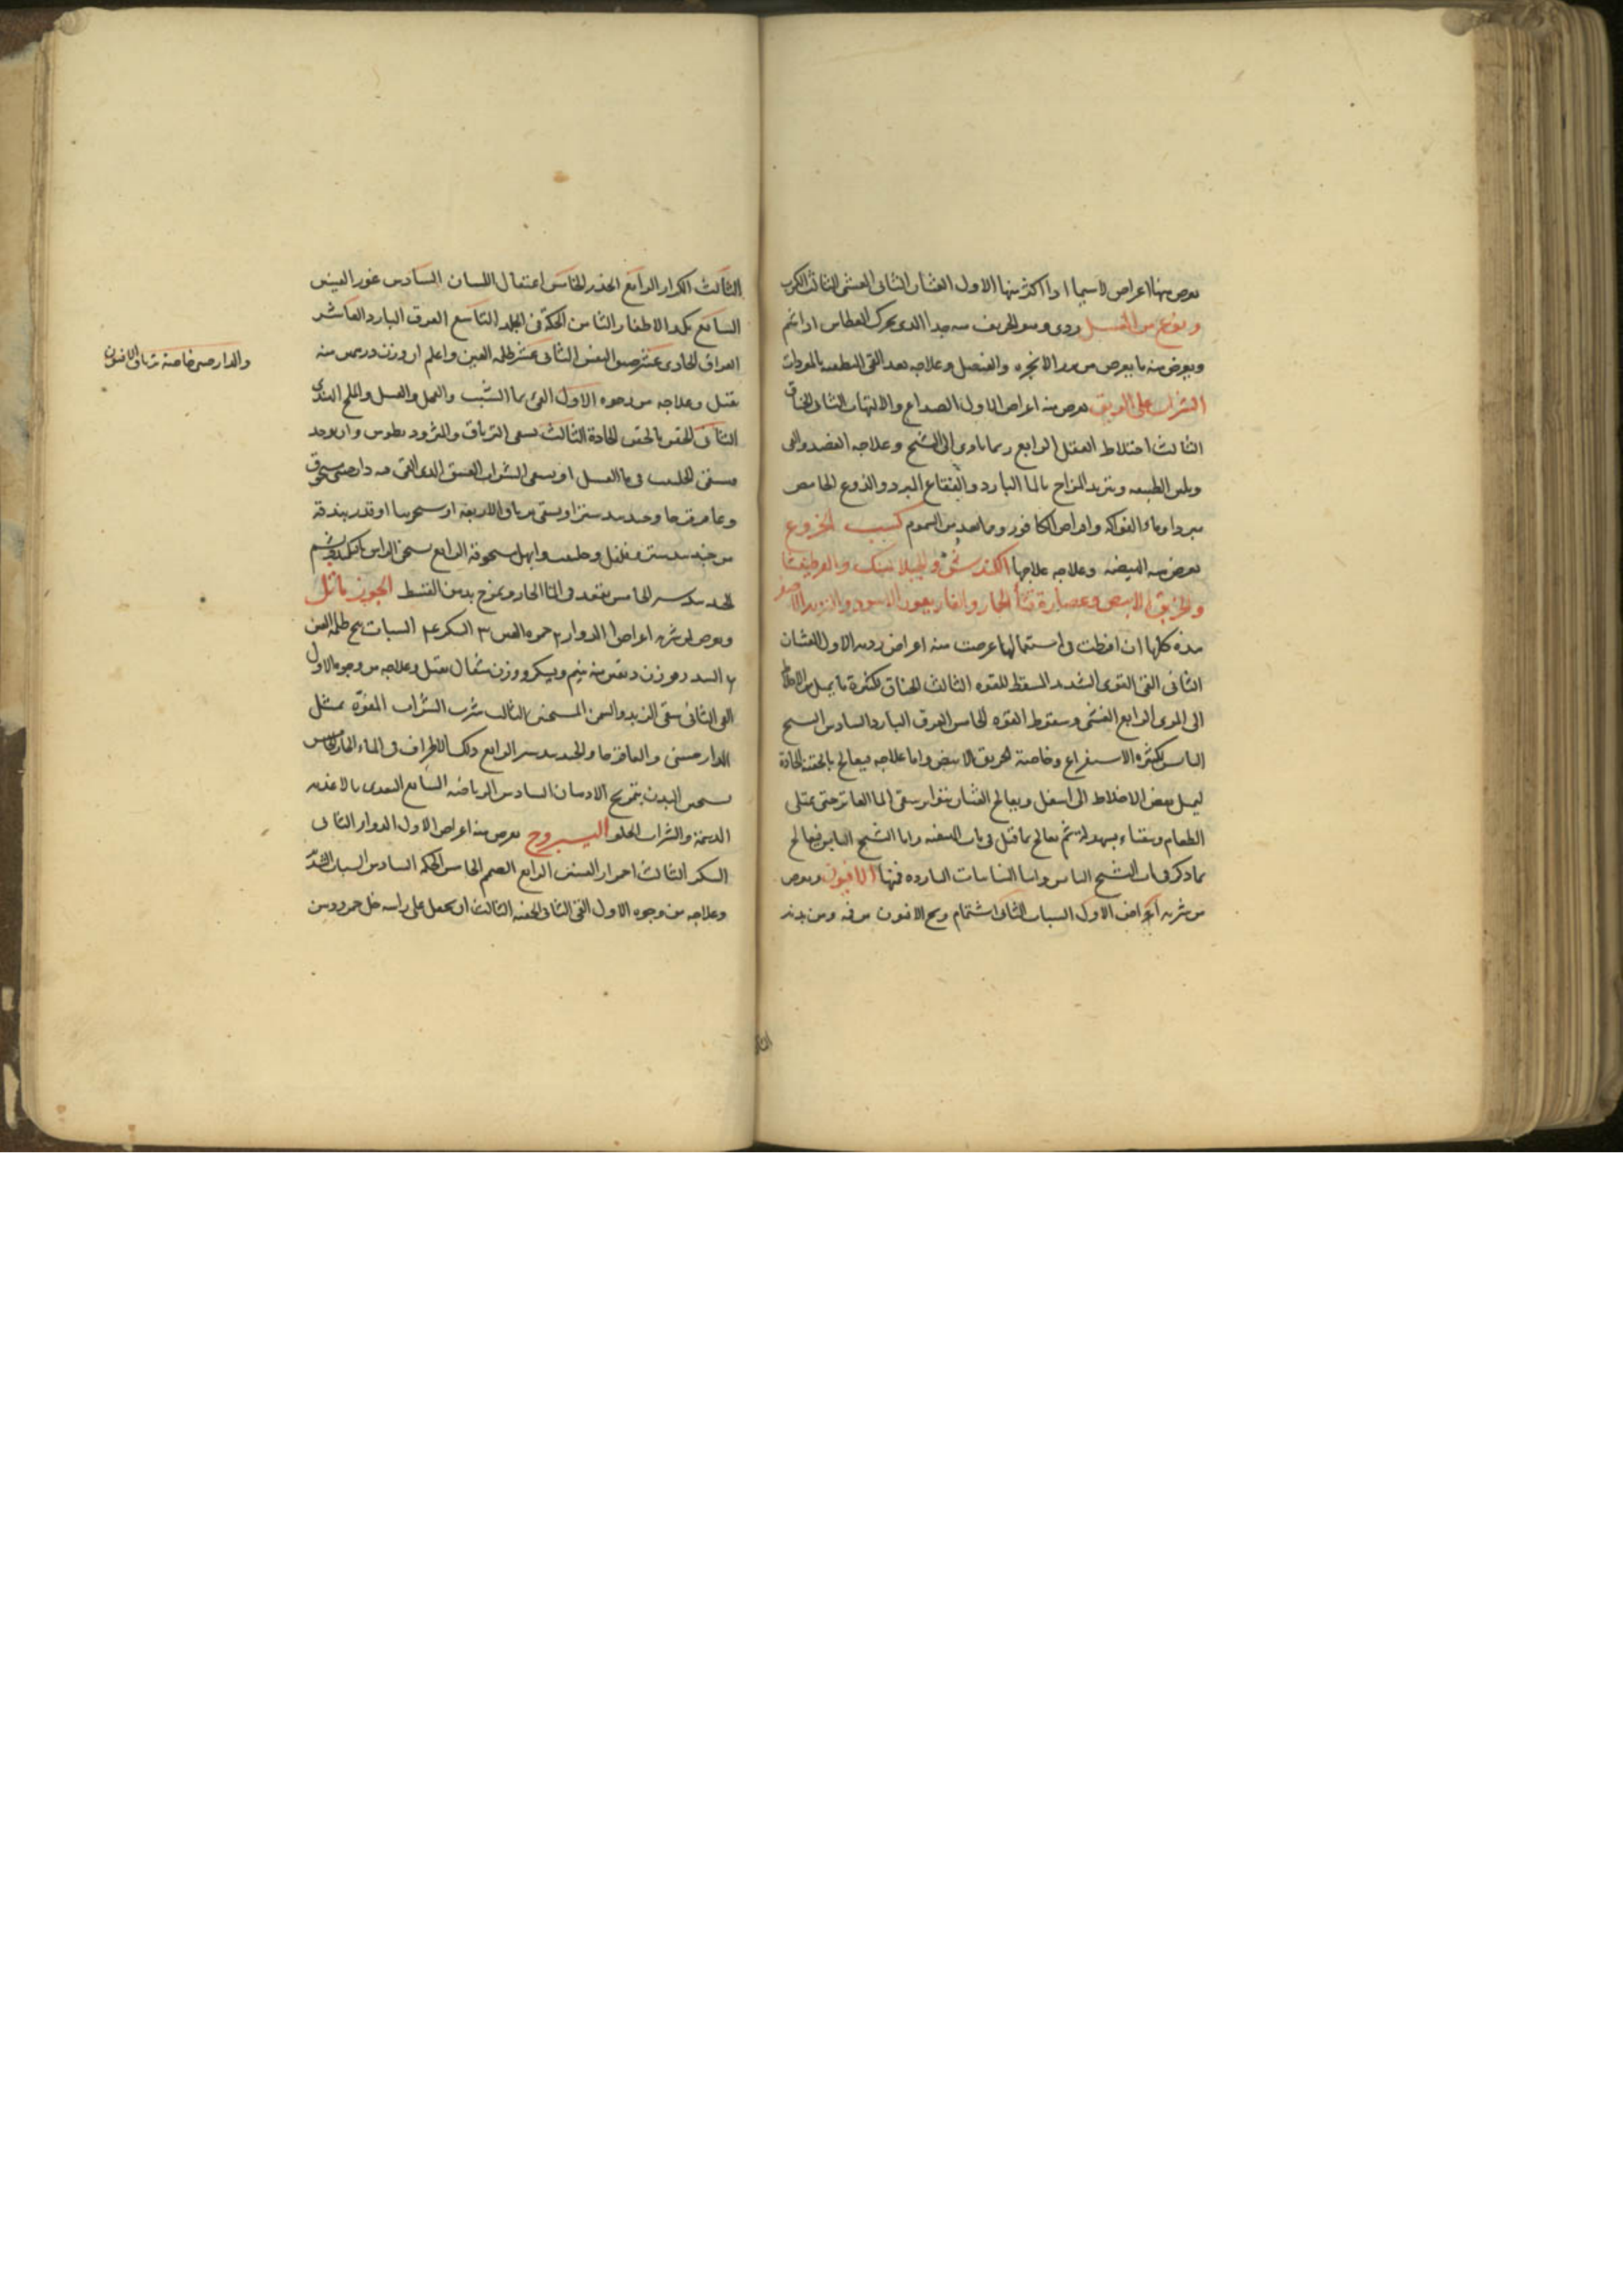 يعرض منها اعراض لاسيما اذا اكثر منها الاول الغثيان الثانى الغشى الثالث الكرب
ونوع من العسل ردى وهو الحريف منه جدا الذى يحرك العطاس اذا شم
ويعرض منه ما يعرض من بزر الانجره والعنصل وعلاجه بعد القى المطفيه بالمبردات
الشراب على الريق يعرض منه اعراض الاول الصداع والالتهاب الثانى الخناق
الثالث اختلاط العقل الرابع ربما تادى الى التشنج وعلاجه الفصد والقى
ويلين الطبيعه وتبريد المزاج بالما البارد والفقاع المبرد والدوغ الحامض
مبردا وماء الفواكه واقراص الكافور وما يعد من السموم كسب الخروع
يعرض منه الهيضه وعلاجه علاجها الكندس والجبلاهنك والعرطنيثا
والخربق الابيض وعصارة قثاء الحمار والغاريقون الاسود والتربد الاصفر
هذه كلها ان افرطت فى استعمالها عرضت منه اعراض رديه الاول الغثيان
الثانى القى القوى الشديد المسقط للقوه الثالث الخناق لكثرة ما يميل من الاخلاط
الى المرى الرابع الغشى وسقوط القوه الخامس العرق البارد السادس التشنج
اليابس لكثرة الاستفراغ وخاصة الخربق الابيض واما علاجه فيعالج بالحقنة الحادة
ليميل بعض الاخلاط الى اسفل ويعالج الغثيان بتواتر سقى الما الفاتر حتى يمتلى
الطعام ويتقياء بسهوله ثم يعالج بما قيل فى باب الهيضه واما التشنج اليابس فيعالج
بما ذكر فى باب التشنج اليابس واما النباتات البارده فمنها الافيون ويعرض
من شربه اعراض الاول السبات الثانى اشتمام ريح الافيون من فيه ومن بدنه
الثالث
الثالث الكزاز الرابع الخدر الخامس اعتقال اللسان السادس غور العينين
السابع كمد الاظفار الثامن الحكة فى الجلد التاسع العرق البارد العاشر
الفواق الحادى عشر ضيق النفس الثانى عشر ظلمه العين واعلم ان وزن درهمين منه
يقتل وعلاجه من وجوه الاول القئ بما الشبت والعسل والملح الهندى
الثانى الحقن بالحقن الحادة الثالث يسقى الترياق والمثروديطوس وان لم يوجد
فيسقى الحلتيت فى ماء العسل او يسقى الشراب العتيق الذى القى فيه دارصينى مسحوق
وعاقرقرحا وجندبيدستر او يسقى ترياق الاربعة او سجزينا او قدر بندقة
من جندبيدستر وفلفل وحلتيت وابهل مسحوقة الرابع يسخن الراس بالتكميد ويشم
الجندبيدستر الخامس يقعد فى الماء الحار ويمرخ بدهن القسط الجوز ماثل
ويعرض لمن شربه اعراض ا الدوار ٢ حمرة العين ٣ السكر ٤ السبات ٥ ظلمة العين
٦ السدر وزن دانقين منه ينيم ويسكر ووزن مثقال يقتل وعلاجه من وجوه الاول
القى الثانى سقى الزبد والسمن المسخنين الثالث شرب الشراب المفوه بمثل
الدارصينى والعاقرقرحا والجندبيدستر الرابع دلك الاطراف فى الماء الحار الخامس
تسخين البدن بتمريخ الادهان السادس الرياضه السابع التغذى بالاغذيه
الدسمة والشراب الحلو اليبروح يعرض منه اعراض الاول الدوار الثانى
السكر الثالث احمرار العينين الرابع الصمم الخامس الحكه السادس السبات الشديد
وعلاجه من وجوه الاول القى الثانى الحقنه الثالث ان يجعل على راسه خل خمر ودهن
والدارصينى خاصة ترياق الافيون